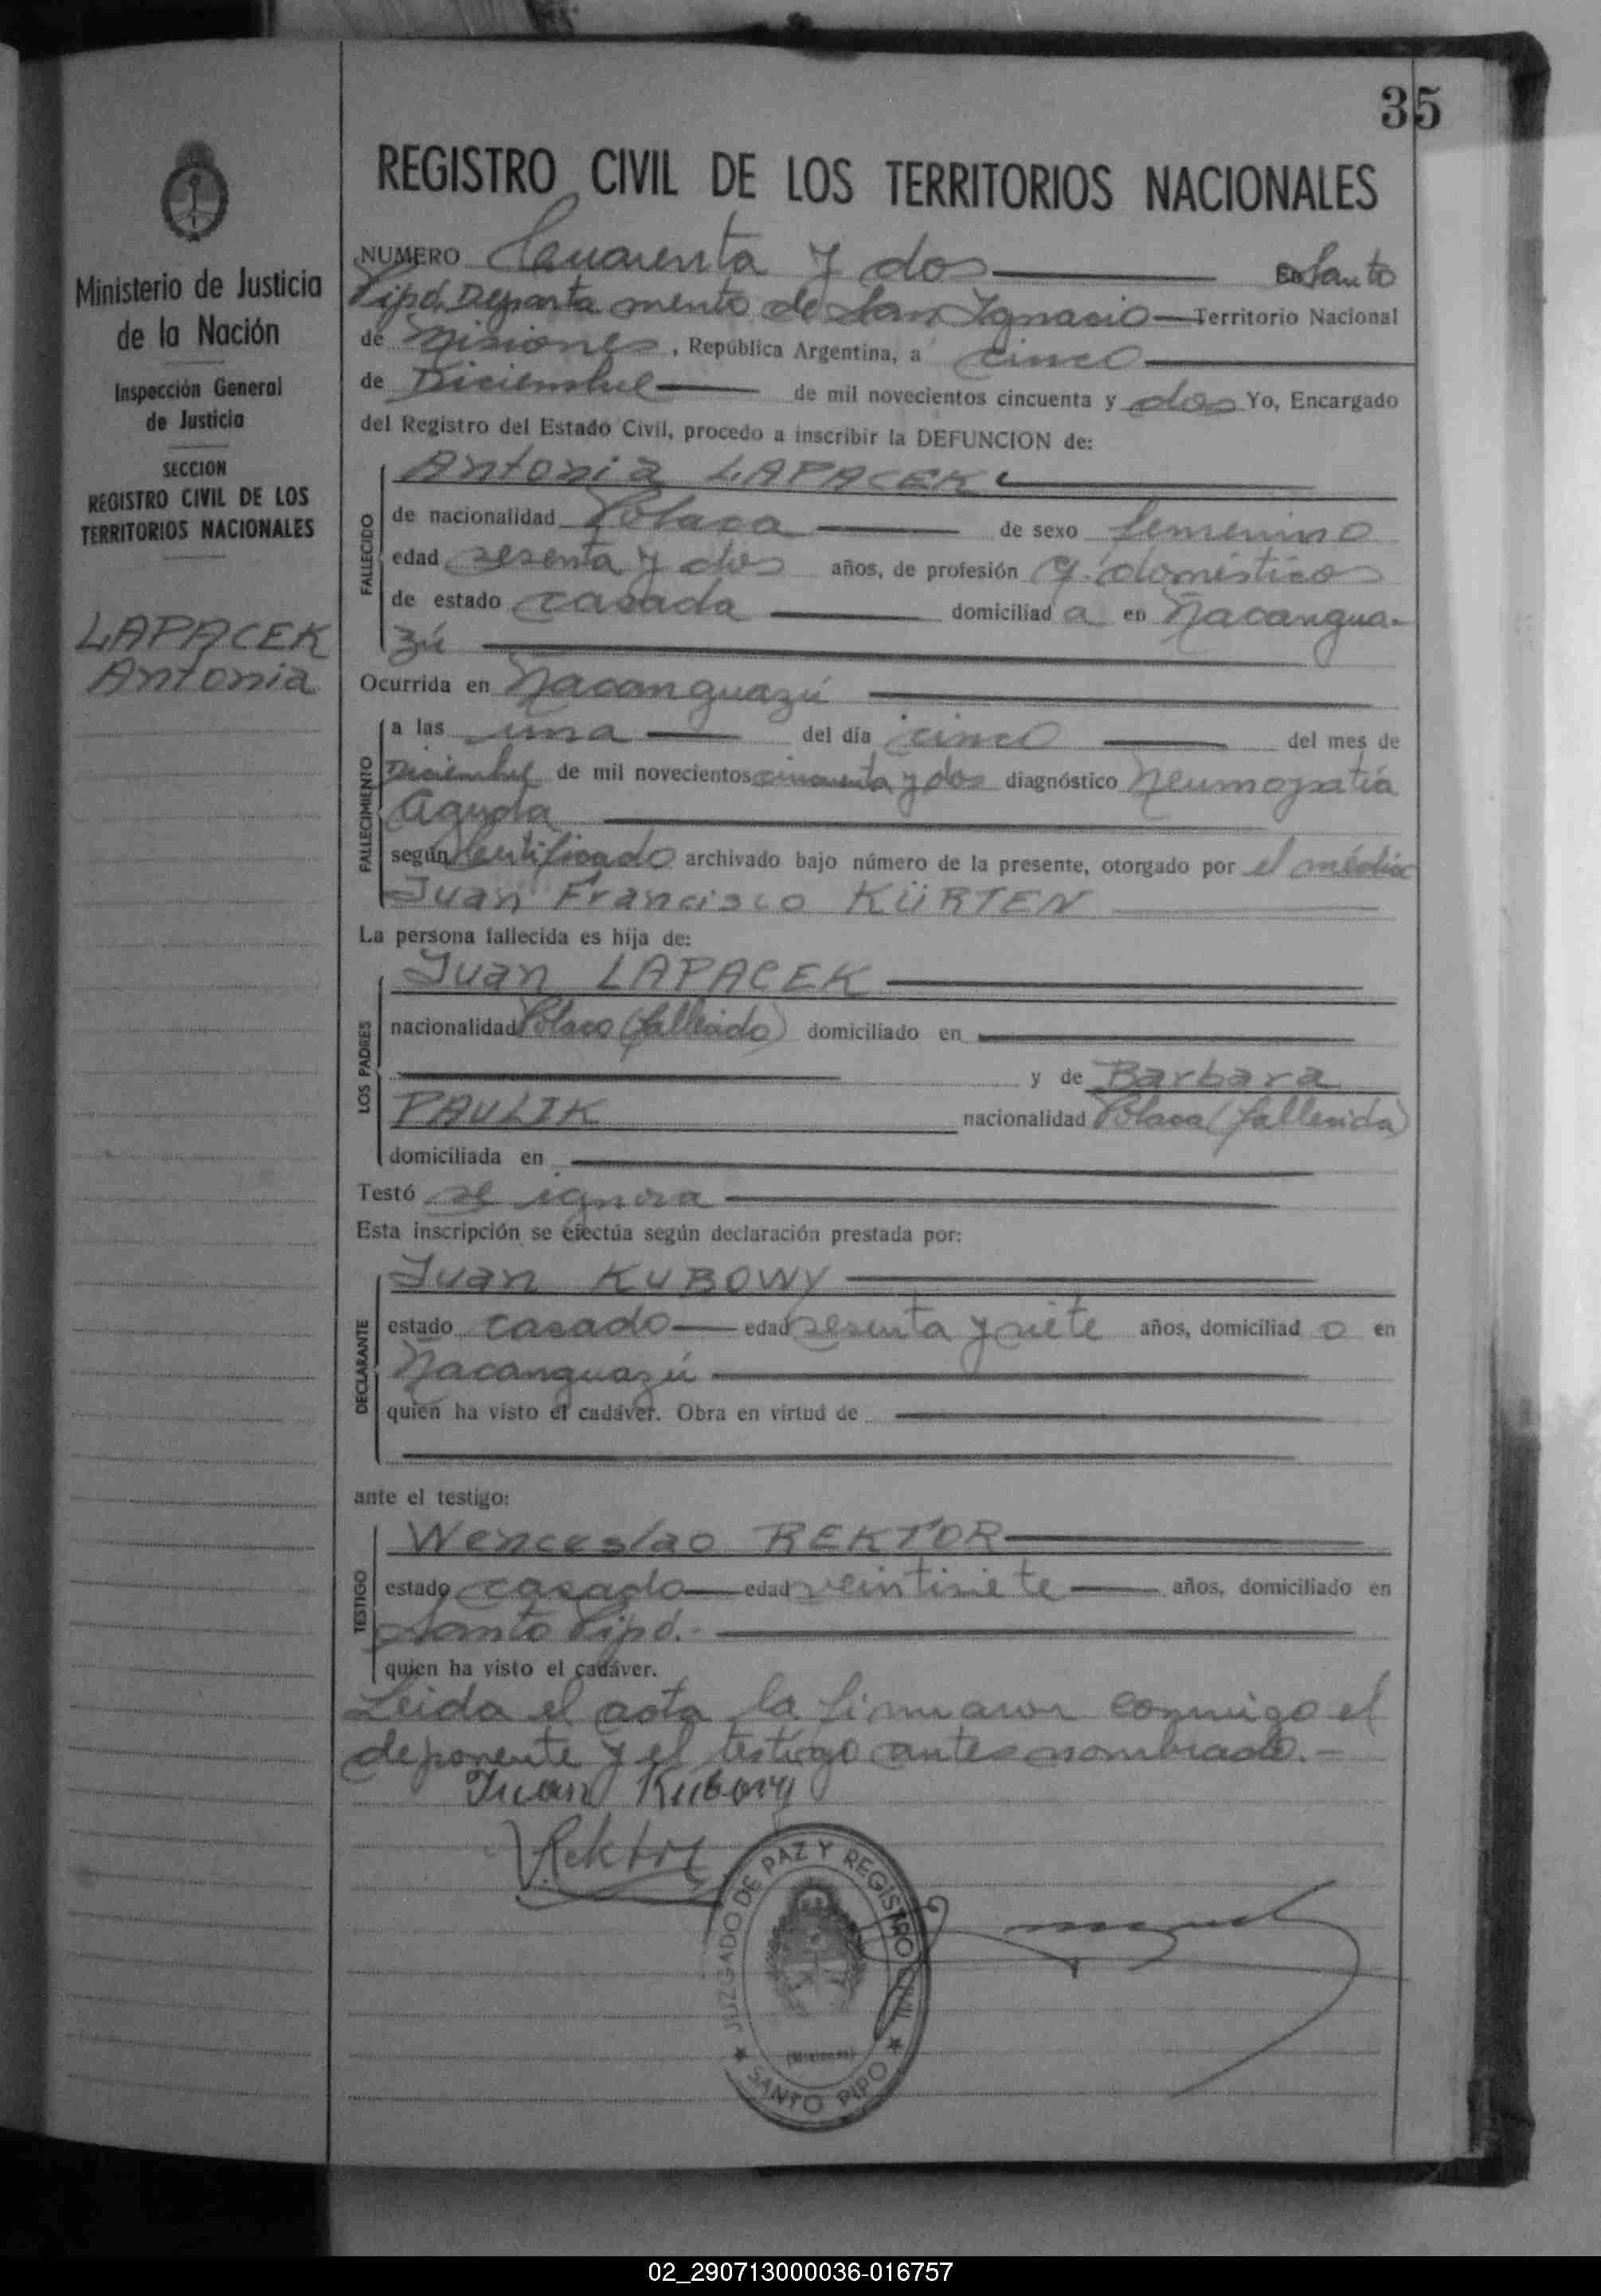 35
REGISTRO CIVIL DE LOS TERRITORIOS NACIONALES
Ministerio de Justicia
de la Nación
Inspección General
de Justicia
SECCION
REGISTRO CIVIL DE LOS
TERRITORIOS NACIONALES
LAPACEK
Antonia
NUMERO Cuarenta y dos En Santo
Pipó, Departamento de San Ignacio Territorio Nacional
de Misiones, República Argentina, a cinco
de Diciembre de mil novecientos cincuenta y dos Yo, Encargado
del Registro del Estado Civil, procedo a inscribir la DEFUNCION de:
FALLECIDO
Antonia LAPACEK
de nacionalidad Polaca de sexo femenino
edad sesenta y dos años, de profesión q. domésticos
de estado casada domiciliad a en Ñacangua-
zú
Ocurrida en Ñacanguazú
FALLECIMIENTO
a las una del día cinco del mes de
Diciembre de mil novecientos cincuenta y dos diagnóstico Neumopatía
Aguda
según Certificado archivado bajo número de la presente, otorgado por el médico
Juan Francisco KÜRTEN
La persona fallecida es hija de:
LOS PADRES
Juan LAPACEK
nacionalidad Polaco (fallecido) domiciliado en
y de Barbara
PAULIK nacionalidad Polaca (fallecida)
domiciliada en
Testó se ignora
Esta inscripción se efectúa según declaración prestada por:
DECLARANTE
Juan KUBOWY
estado casado edad sesenta y siete años, domiciliad o en
Ñacanguazú
quien ha visto el cadáver. Obra en virtud de
ante el testigo:
TESTIGO
Wenceslao REKTOR
estado casado edad veintisiete años, domiciliado en
Santo Pipó.-
quien ha visto el cadáver.
Leida el acta la firmaron conmigo el
deponente y el testigo antes nombrado.-
Juan Kubowy
V. Rektor
JUZGADO DE PAZ Y REGISTRO CIVIL
(Misiones)
★ SANTO PIPO ★
02_290713000036-016757